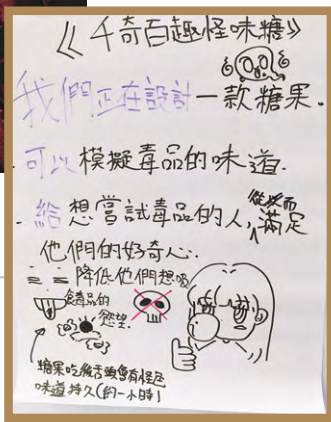 《千奇百趣怪味糖》
我們正在設計一款糖果.
可以模擬毒品的味道.
給想嘗試毒品的人,從而滿足
他們的好奇人..
降低他們想吸
食毒品的
慾望.
糖果吃後舌頭會有怪色
味道持久(約一小時)